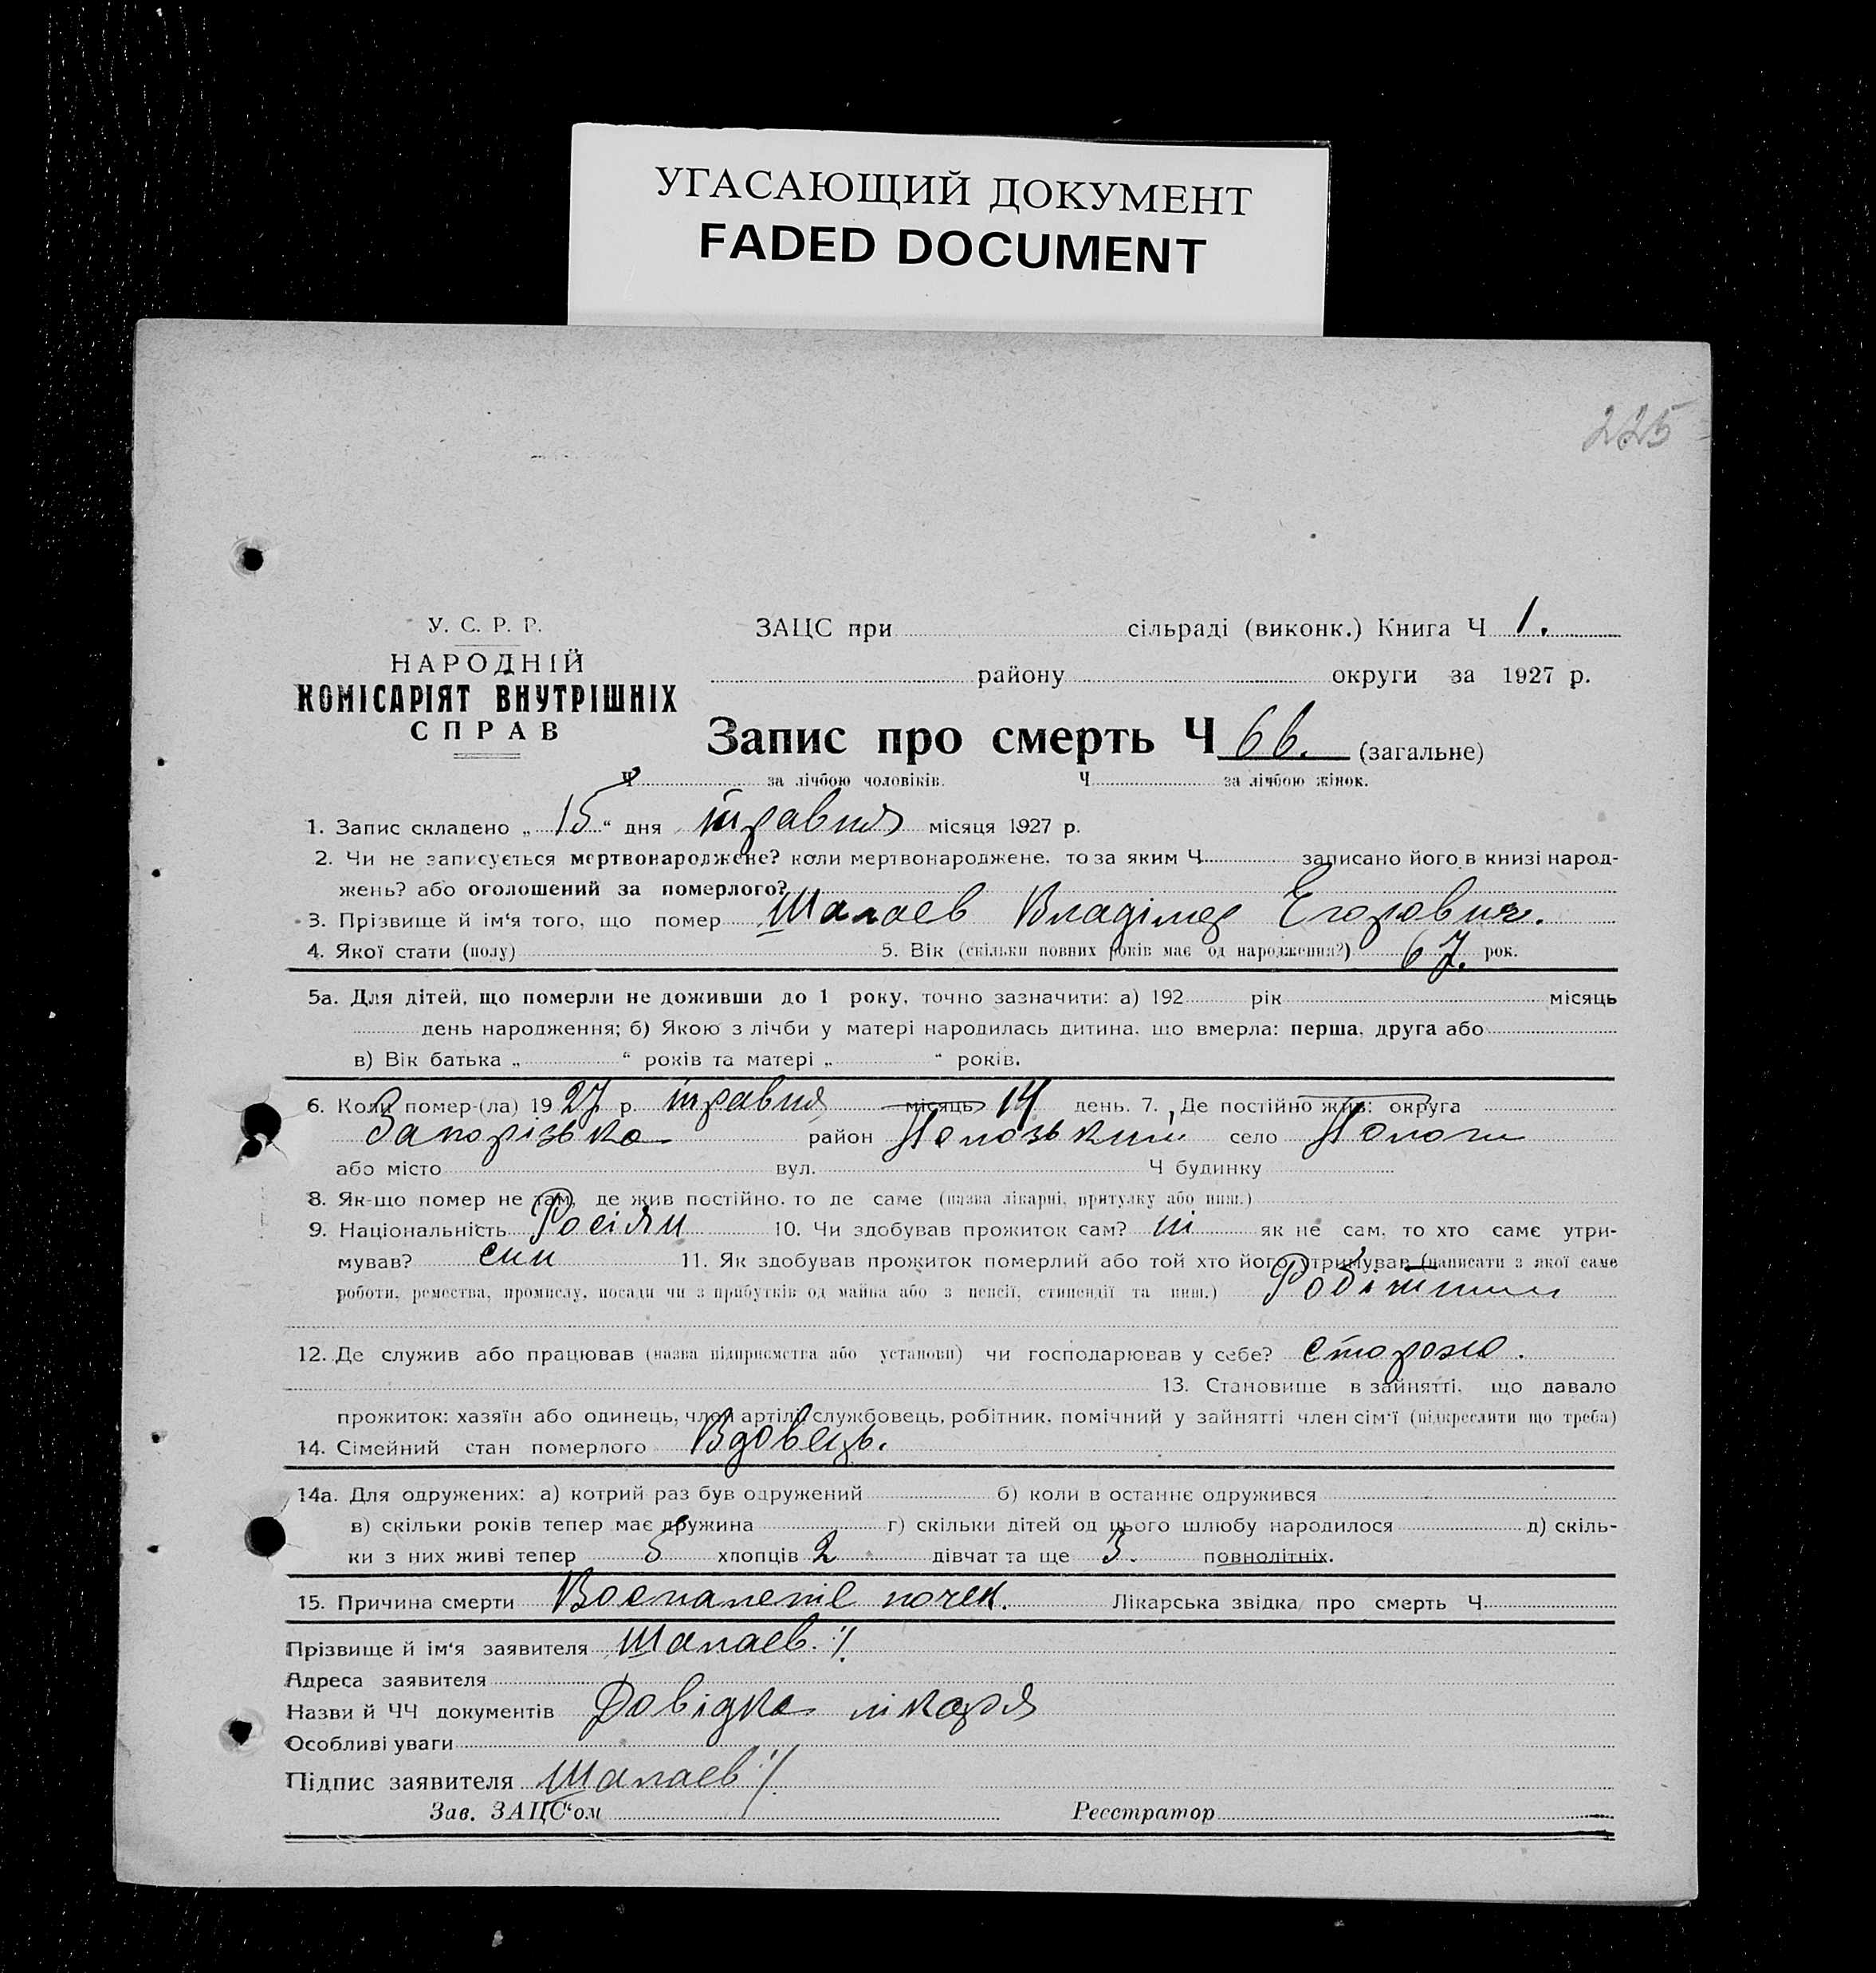 УГАСАЮЩИЙ ДОКУМЕНТ
FADED DOCUMENT
225
У. С. Р. Р.
НАРОДНІЙ
КОМІСАРІЯТ ВНУТРІШНІХ
СПРАВ
ЗАЦС при сільраді (виконк.) Книга Ч 1.
району округи за 1927 р.
Запис про смерть Ч 66. (загальне)
Ч за лічбою чоловіків. Ч за лічбою жінок.
1. Запис складено „ 15 “ дня травня місяця 1927 р.
2. Чи не записується мертвонароджене? коли мертвонароджене, то за яким Ч записано його в книзі народ-
жень? або оголошений за померлого?
3. Прізвище й ім'я того, що помер Шалаев Владімер Егорович.
4. Якої стати (полу) 5. Вік (скільки повних років має од народження?) 67. рок.
5а. Для дітей, що померли не доживши до 1 року, точно зазначити: а) 192 рік місяць
день народження; б) Якою з лічби у матері народилась дитина, що вмерла: перша, друга або
в) Вік батька „ “ років та матері „ “ років.
6. Коли помер-(ла) 1927 р. травня місяць 14 день. 7. Де постійно жив: округа
Запорізька район Пологзький село Пологи
або місто вул. Ч будинку
8. Як-що помер не там, де жив постійно, то де саме (назва лікарні, притулку або инш.)
9. Національність Росіян 10. Чи здобував прожиток сам? ні як не сам, то хто саме утри-
мував? син 11. Як здобував прожиток померлий або той хто його утримував (написати з якої саме
роботи, ремества, промислу, посади чи з прибутків од майна або з пенсії, стипендії та инш.) Робітник
12. Де служив або працював (назва підприємства або установи) чи господарював у себе?
13. Становище в зайнятті, що давало
прожиток: хазяїн або одинець, член артілі, службовець, робітник, помічний у зайнятті член сім'ї (підкреслити що треба)
14. Сімейний стан померлого Вдовець.
14а. Для одружених: а) котрий раз був одружений б) коли в останнє одружився
в) скільки років тепер має дружина г) скільки дітей од цього шлюбу народилося д) скіль-
ки з них живі тепер 5 хлопців 2 дівчат та ще 3. повнолітніх.
15. Причина смерти Воспаленіе почек. Лікарська звідка про смерть Ч
Прізвище й ім'я заявителя Шалаев
Адреса заявителя
Назви й ЧЧ документів Довідка лікаря
Особливі уваги
Підпис заявителя Шалаев
Зав. ЗАЦС'ом Реєстратор